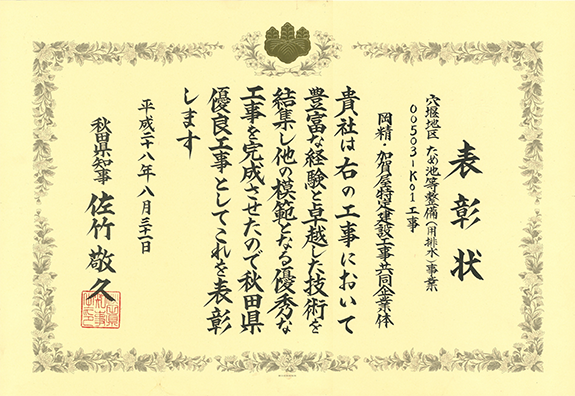 表彰状
穴堀地区 ため池等整備(用排水)事業
005031-K01工事
岡精・加賀屋特定建設工事共同企業体
貴社は右の工事において
豊富な経験と卓越した技術を
結集し他の模範となる優秀な
工事を完成させたので秋田県
優良工事としてこれを表彰
します
平成二十八年八月三十一日
秋田県知事 佐竹敬久